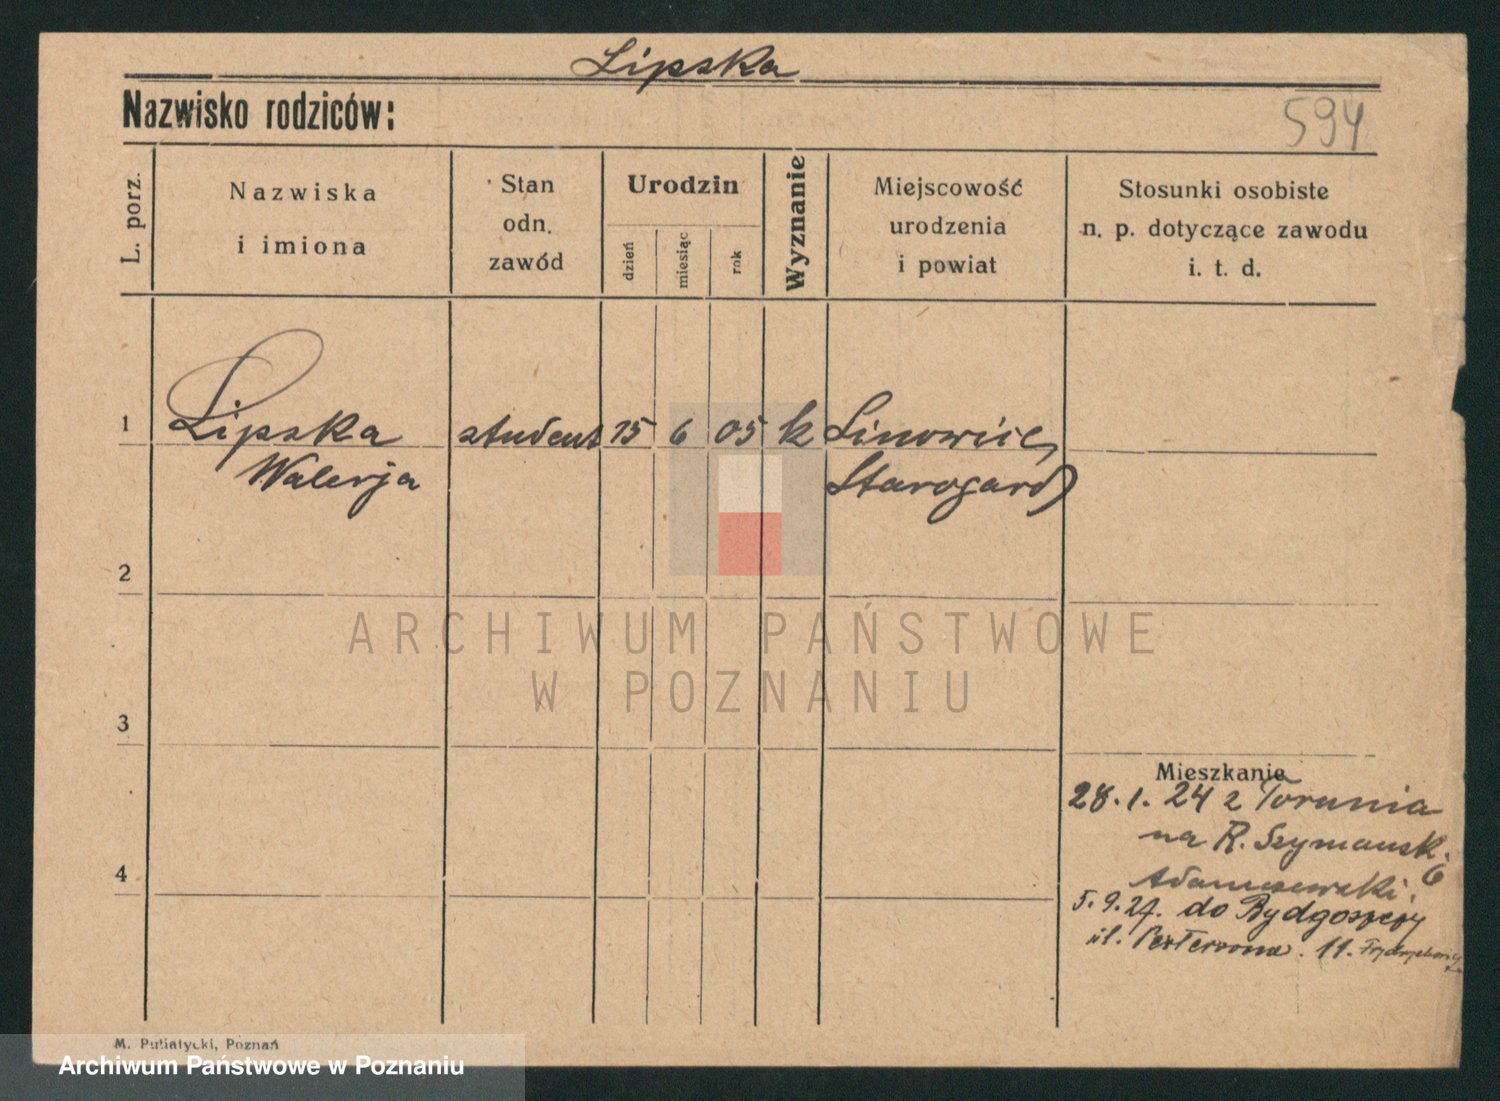 Lipska
Nazwisko rodziców:
594
L. porz.
Nazwiska
i imiona
Stan
odn.
zawód
Urodzin
dzień
miesiąc
rok
Wyznanie
Miejscowość
urodzenia
i powiat
Stosunki osobiste
n. p. dotyczące zawodu
i. t. d.
1
Lipska student 15 6 05 k
Walerja Starogard
2
ARCHIWUM PAŃSTWOWE
W POZNANIU
3
Mieszkanie
28. 1. 24 z Torunia
na R. Szymansk. 6
4
5. 9. 27. do Bydgoszczy
ul. 11.
M. Putiatycki, Poznań
Archiwum Państwowe w Poznaniu